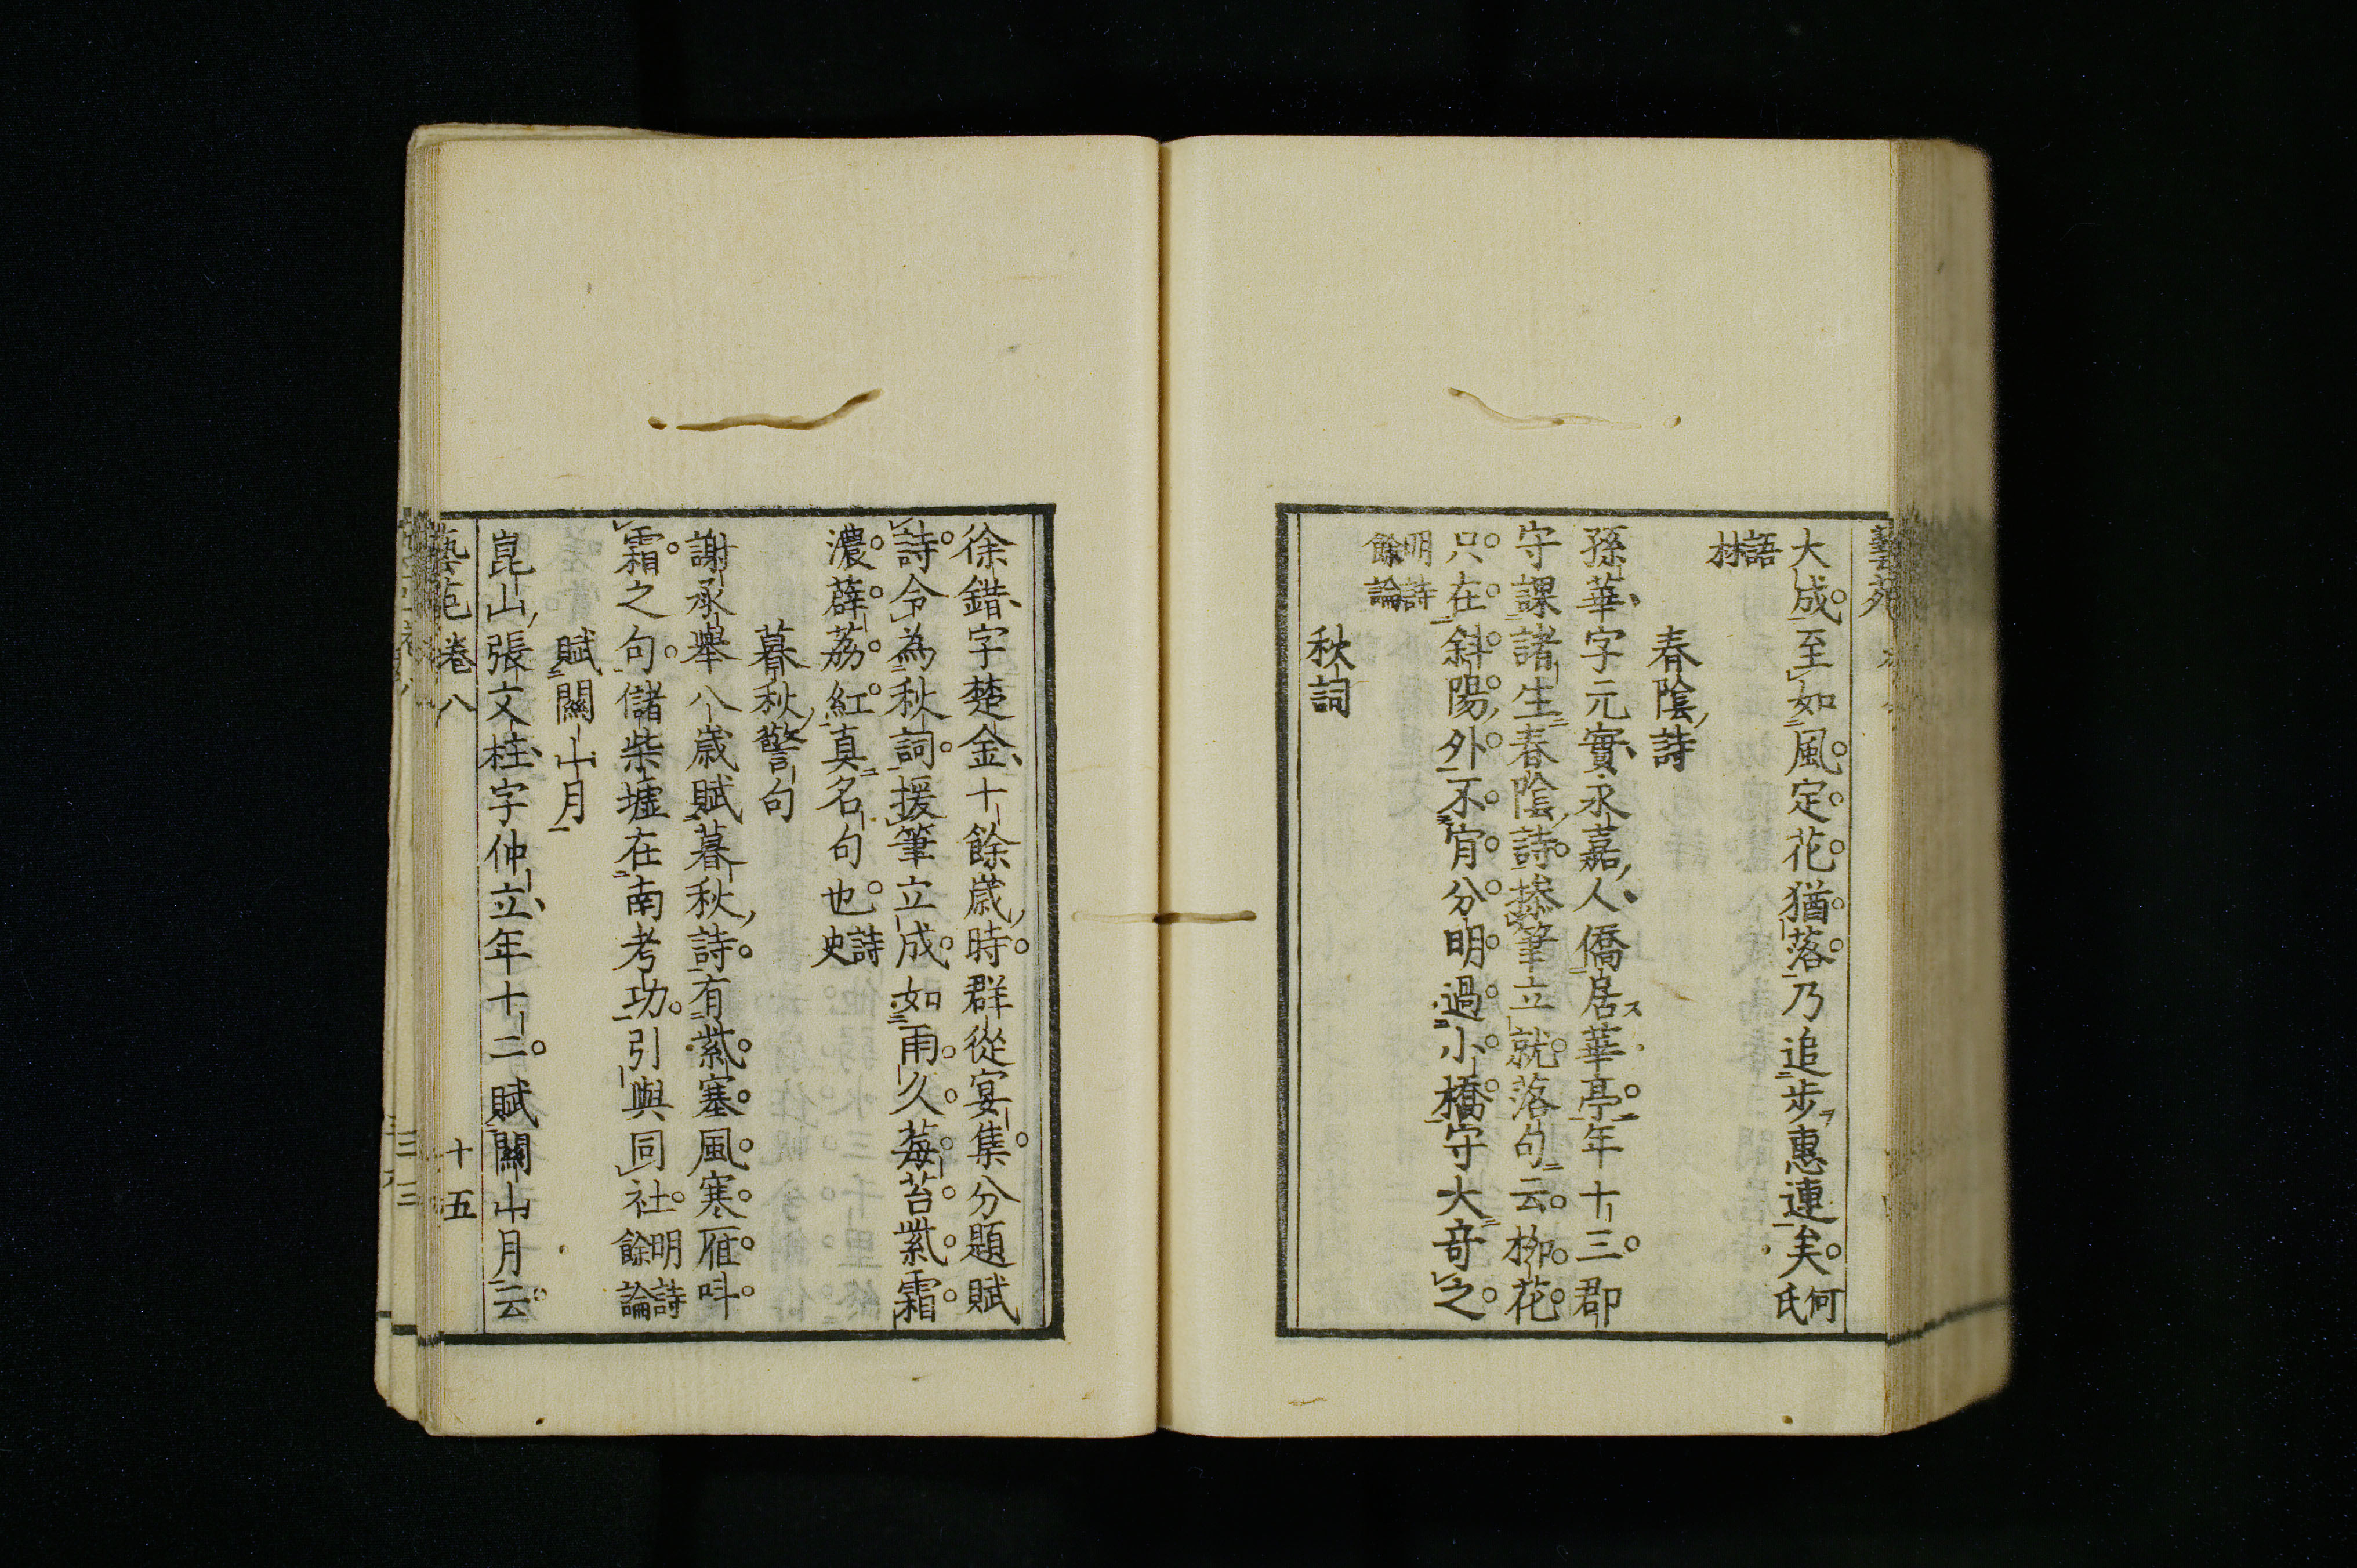 藝苑
大成至如風定花猶落乃追步惠連矣何氏
語林
春陰詩
孫華字元實永嘉人僑居華亭年十三郡
守課諸生春陰詩操筆立就落句云柳花
只在斜陽外不肯分明過小橋守大竒之
明詩餘論
秋詞
徐錯字楚金十餘歲時群從宴集分題賦
詩令為秋詞援筆立成如雨久莓苔紫霜
濃薜荔紅真名句也詩史
暮秋警句
謝承舉八歲賦暮秋詩有紫塞風寒雁呌
霜之句儲柴墟在南考功引與同社明詩餘論
賦關山月
崑山張文柱字仲立年十二賦關山月云
藝苑卷八 十五